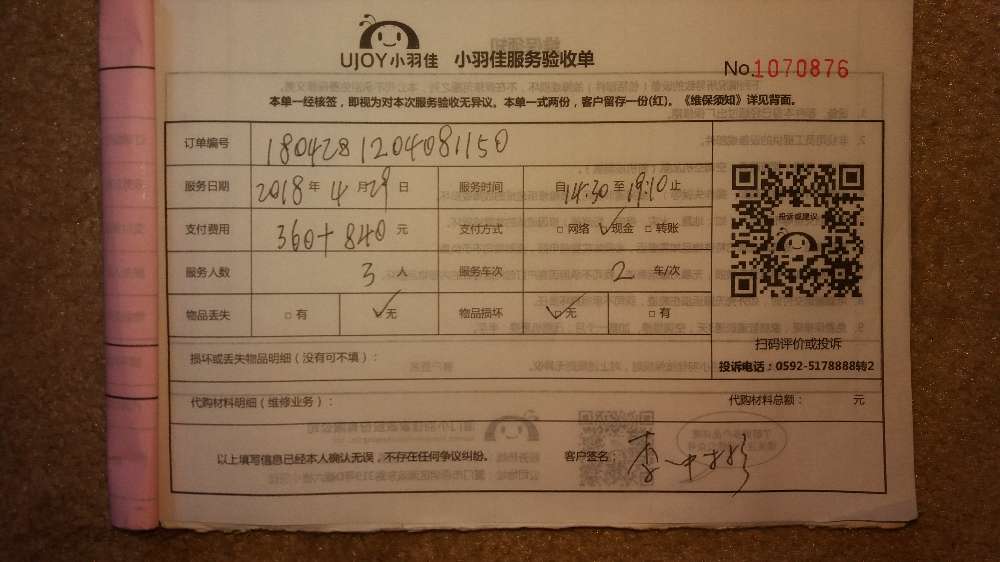 UJOY小羽佳 小羽佳服务验收单
No.1070876
本单一经核签，即视为对本次服务验收无异议。本单一式两份，客户留存一份(红)。《维保须知》详见背面。
订单编号 1804281204081150
服务日期 2018年4月29日 服务时间 自14:30至19:10止
支付费用 360+840元 支付方式 □网络 ☑现金 □转账
投诉或建议
服务人数 3人 服务车次 2车/次
物品丢失 □有 ☑无 物品损坏 ☑无 □有
扫码评价或投诉
损坏或丢失物品明细（没有可不填）：
投诉电话：0592-5178888转2
代购材料明细（维修业务）： 代购材料总额： 元
以上填写信息已经本人确认无误，不存在任何争议纠纷。 客户签名：李